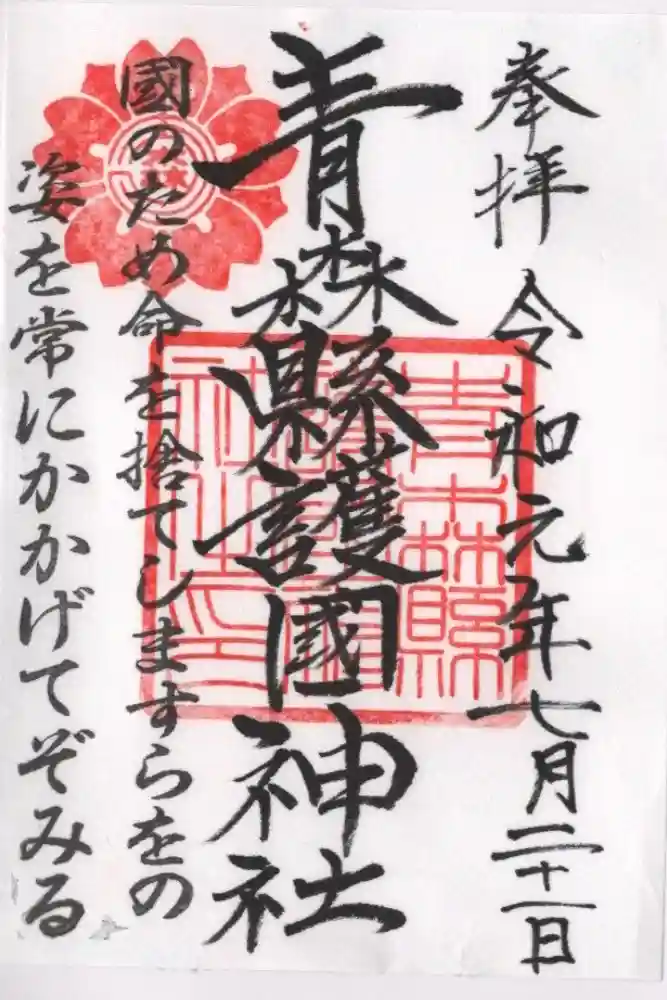 奉拝 令和元年七月二十一日
青森縣護國神社
國のため命を捨てしますらをの
姿を常にかかげてぞみる
青森縣護國神社之印